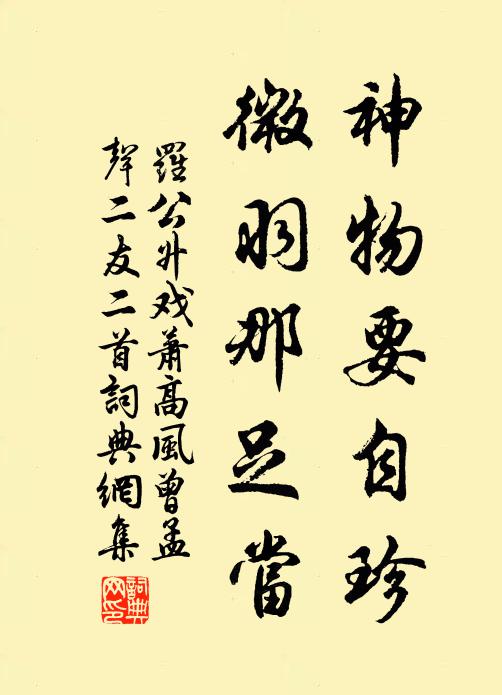 神物要自珍
微羽那足當
羅公升戏蕭高風曾孟
聲二友二首詞典網集
詞典网印